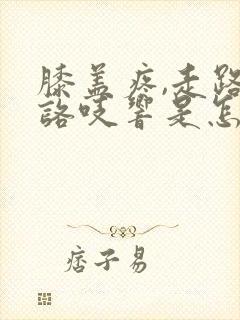 膝盖疼,走路
咯吱響是怎
痞子易